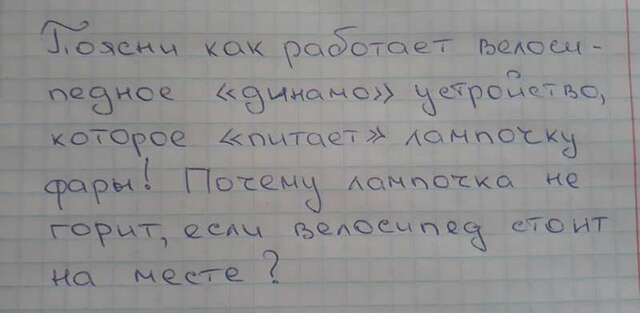 Поясни как работает велоси-
педное «динамо» устройство,
которое «питает» лампочку
фары! Почему лампочка не
горит, если велосипед стоит
на месте?